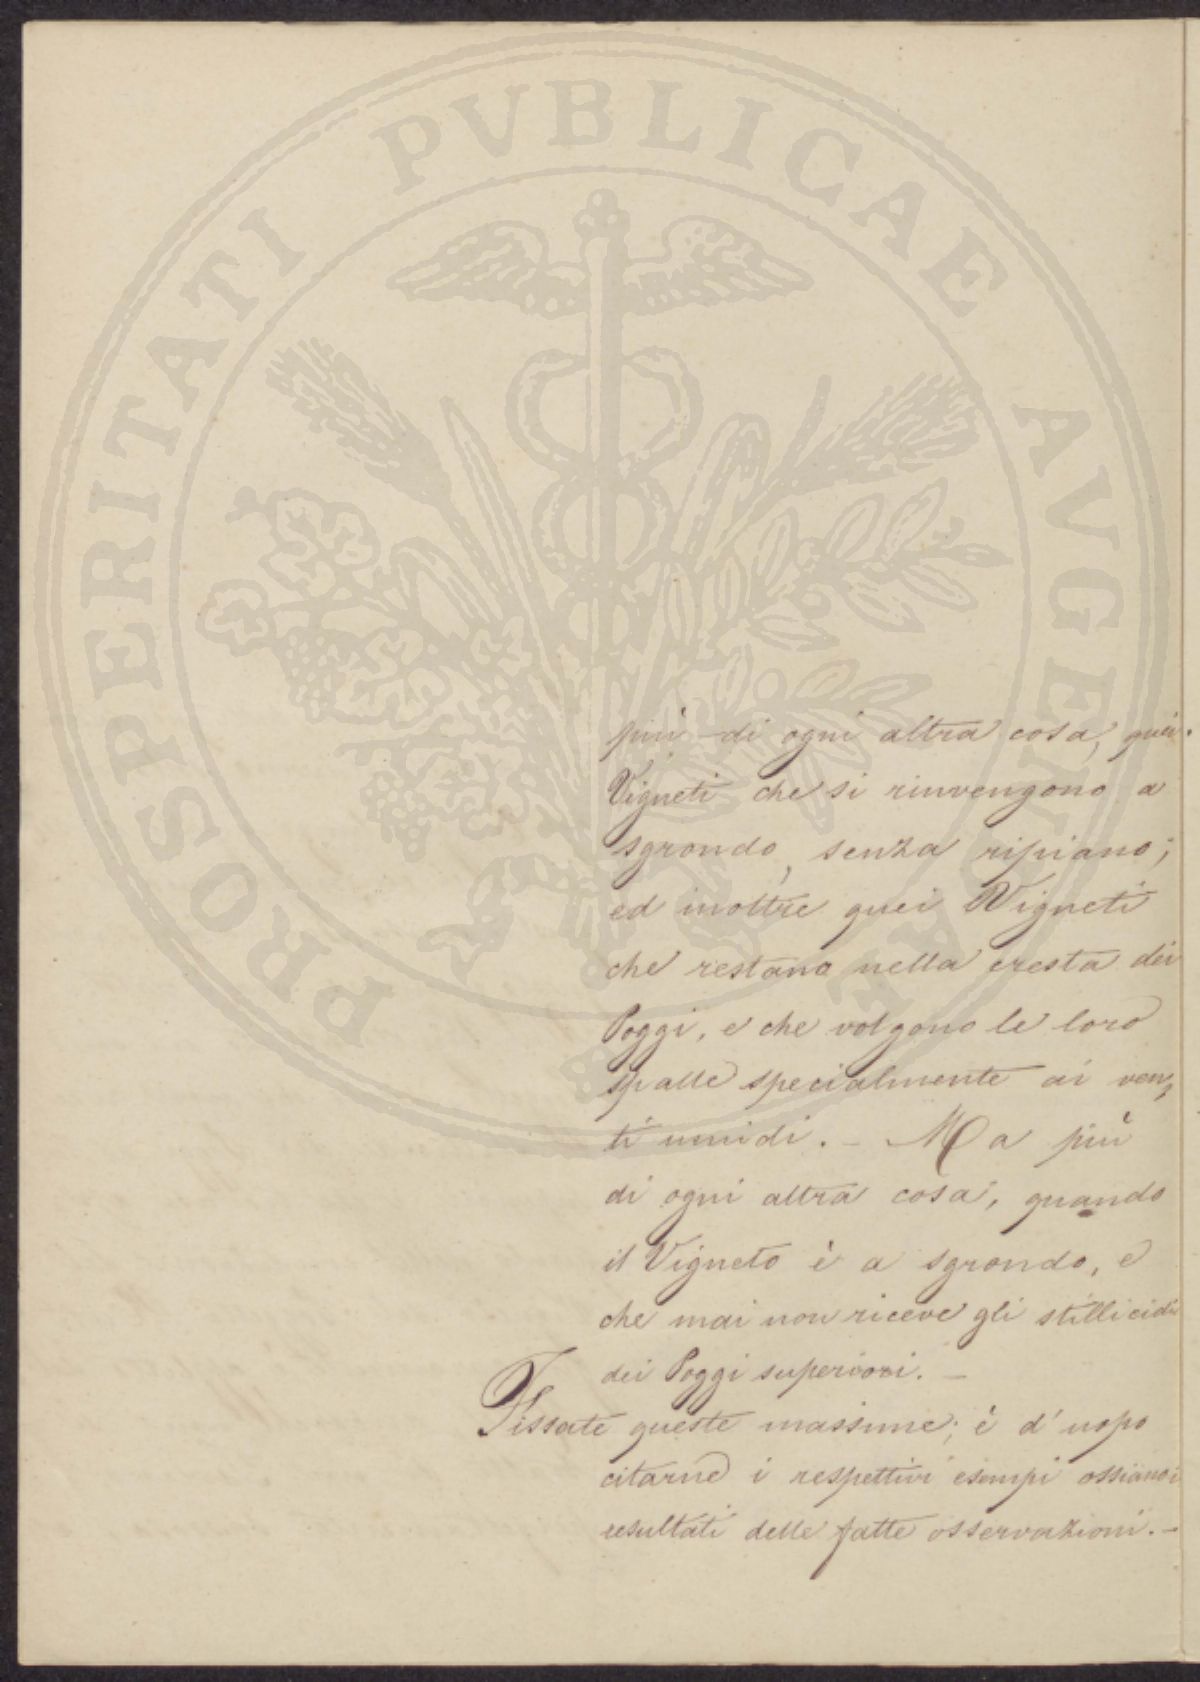 PROSPERITATI PVBLICAE AVGENDAE
più di ogni altra cosa, quei
Vigneti che si rinvengono a
sgrondo, senza ripiano;
ed inoltre quei Vigneti
che restano nella cresta dei
Poggi, e che volgono le loro
spalle specialmente ai ven,
ti umidi. - Ma più
di ogni altra cosa, quando
il Vigneto è a sgrondo, e
che mai non riceve gli stillicidi
dei Poggi superiori. -
Fissate queste massime; è d'uopo
citarne i respettivi esempi ossiano i
resultati delle fatte osservazioni. -